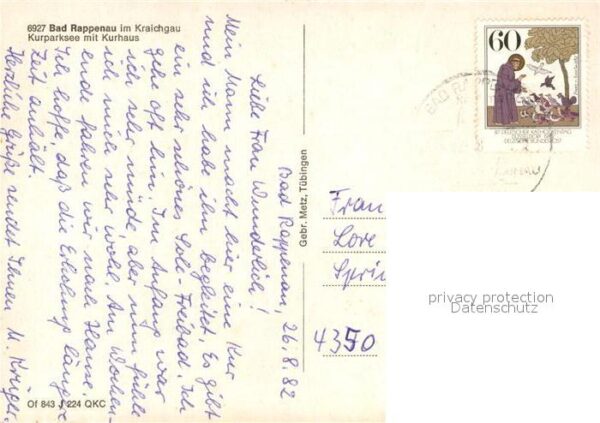 6927 Bad Rappenau im Kraichgau
Kurparksee mit Kurhaus
Bad Rappenau, 26.8.82
Liebe Frau Wunderlich!
Mein Mann macht hier eine Kur
und ich habe ihn begleitet. Es gibt
ein sehr schönes Sole-Freibad. Ich
gehe oft hin. Im Anfang war
ich sehr müde, aber nun fühle
ich mich sehr wohl. Am Wochen-
ende fahren wir nach Hause.
Ich hoffe, daß die Erholung längere
Zeit anhält.
Herzliche Grüße sendet Ihnen M. Krüger.
Of 843 J 224 QKC
Gebr. Metz, Tübingen
60
87. DEUTSCHER KATHOLIKENTAG
DÜSSELDORF 1982
DEUTSCHE BUNDESPOST
BAD RAPPENAU
Frau
Lore
Spri
4350
privacy protection
Datenschutz